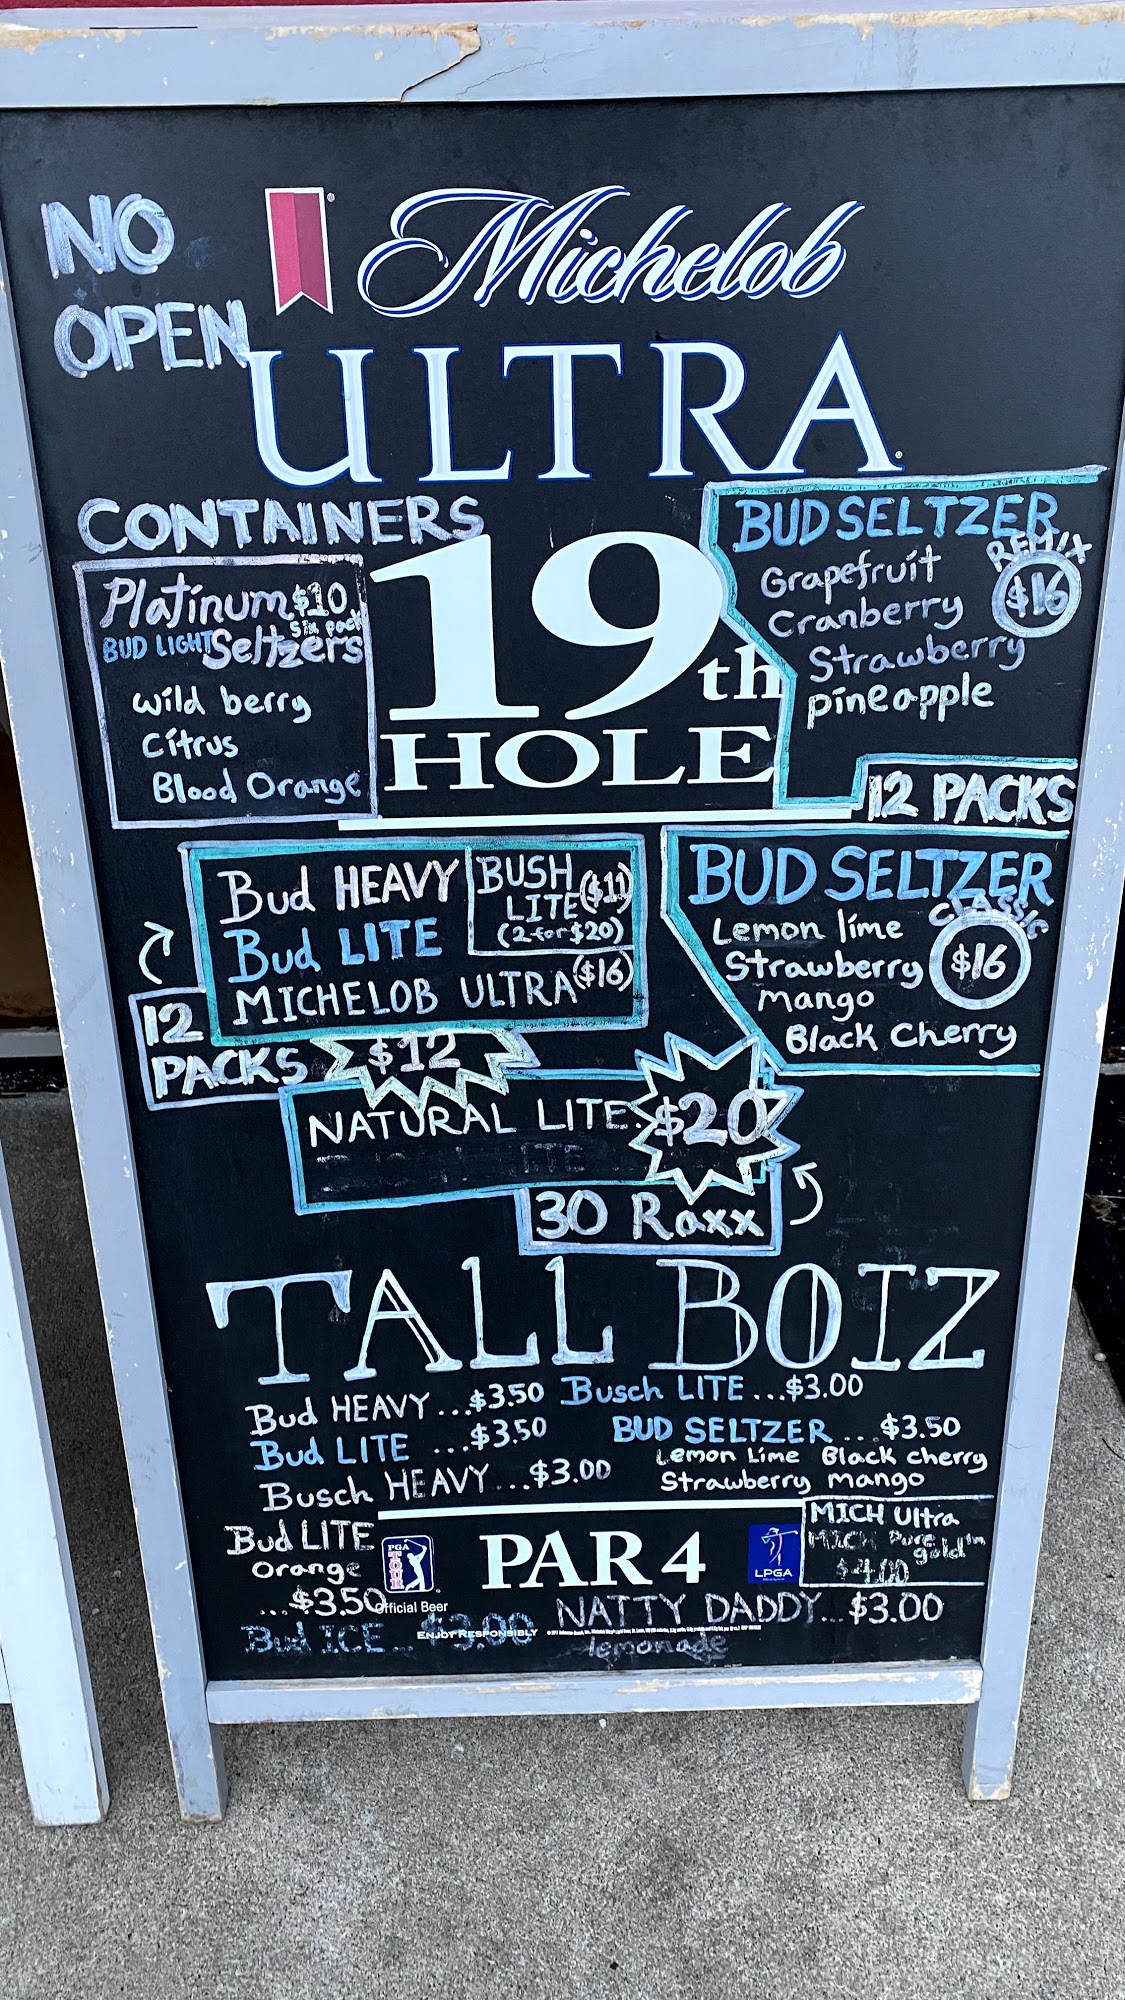 NO
OPEN
Michelob
ULTRA
CONTAINERS
19th
HOLE
Platinum $10
six pack
BUD LIGHT Seltzers
wild berry
Citrus
Blood Orange
BUD SELTZER
REMIX
Grapefruit
$16
Cranberry
Strawberry
pineapple
12 PACKS
Bud HEAVY
Bud LITE
MICHELOB ULTRA ($16)
BUSH
LITE ($11)
(2 for $20)
12
PACKS
$12
BUD SELTZER
CLASSIC
Lemon lime
$16
Strawberry
mango
Black Cherry
NATURAL LITE
$20
30 Raxx
TALL BOIZ
Bud HEAVY...$3.50
Busch LITE...$3.00
Bud LITE ...$3.50
BUD SELTZER... $3.50
Busch HEAVY...$3.00
Lemon Lime Black cherry
Strawberry mango
Bud LITE
Orange
...$3.50
PGA
TOUR
Official Beer
PAR 4
LPGA
MICH Ultra
MICH Pure
gold
$4.00
Bud ICE... $3.00
ENJOY RESPONSIBLY
NATTY DADDY...$3.00
lemonade